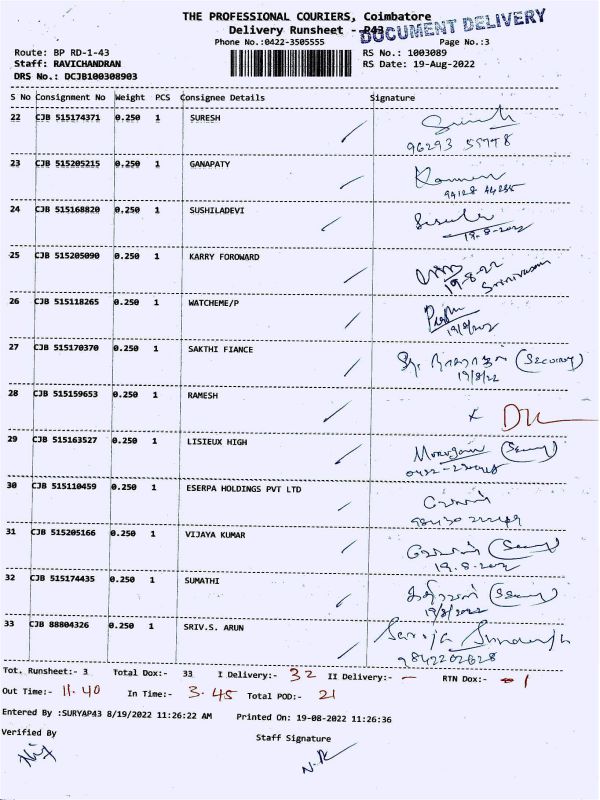 THE PROFESSIONAL COURIERS, Coimbatore
DOCUMENT DELIVERY
Delivery Runsheet - P43
Phone No.:0422-3505555 Page No.:3
Route: BP RD-1-43 RS No.: 1003089
Staff: RAVICHANDRAN RS Date: 19-Aug-2022
DRS No.: DCJB100308903
S No Consignment No Weight PCS Consignee Details Signature
22 CJB 515174371 0.250 1 SURESH
23 CJB 515205215 0.250 1 GANAPATY
24 CJB 515168820 0.250 1 SUSHILADEVI
19-8-2022
25 CJB 515205090 0.250 1 KARRY FOROWARD
19-8-22
Srinivasan
26 CJB 515118265 0.250 1 WATCHEME/P
27 CJB 515170370 0.250 1 SAKTHI FIANCE
19/8/22
28 CJB 515159653 0.250 1 RAMESH
29 CJB 515163527 0.250 1 LISIEUX HIGH
30 CJB 515110459 0.250 1 ESERPA HOLDINGS PVT LTD
31 CJB 515205166 0.250 1 VIJAYA KUMAR
19.8.2022
32 CJB 515174435 0.250 1 SUMATHI
19/8/2022
33 CJB 88804326 0.250 1 SRIV.S. ARUN
9842202628
Tot. Runsheet:- 3 Total Dox:- 33 I Delivery:- 32 II Delivery:- — RTN Dox:- 1
Out Time:- 11.40 In Time:- 3.45 Total POD:- 21
Entered By :SURYAP43 8/19/2022 11:26:22 AM Printed On: 19-08-2022 11:26:36
Verified By Staff Signature